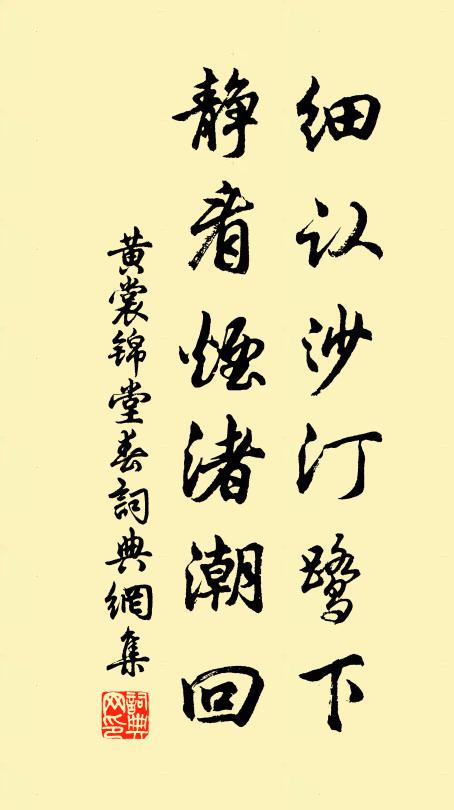 细认沙汀鹭下
静看烟渚潮回
黄裳锦堂春詞典網集
詞典网印